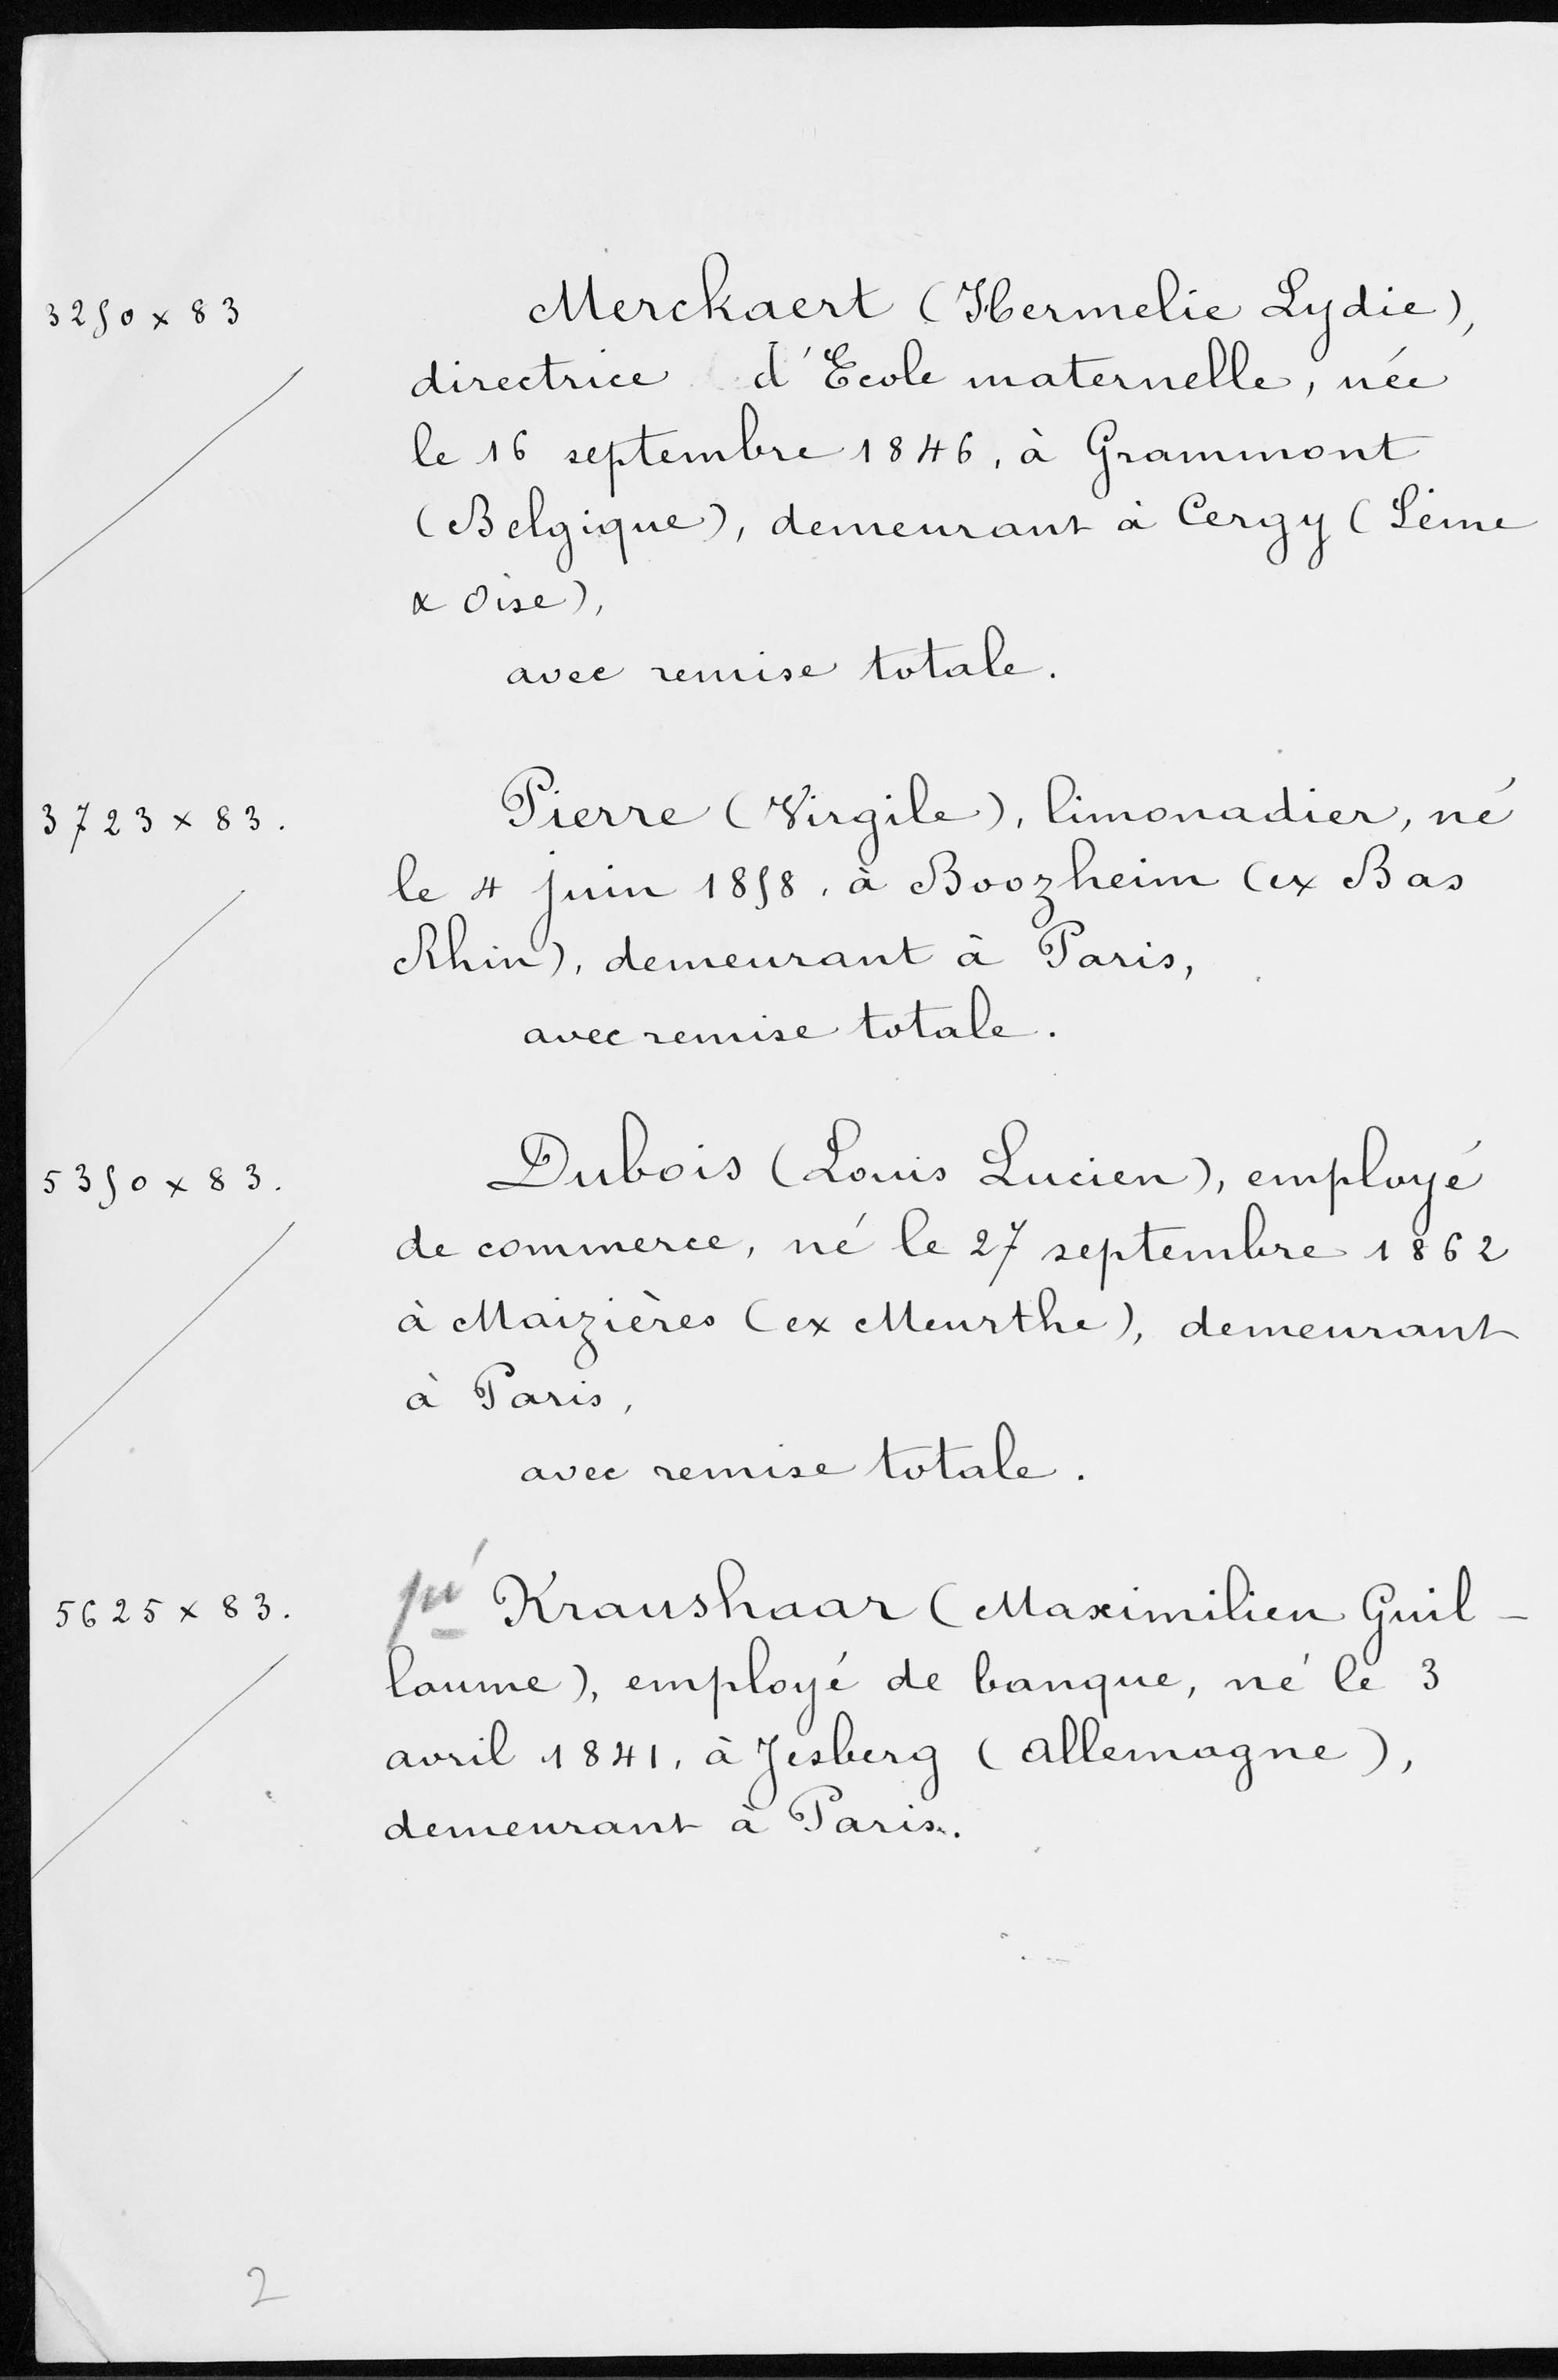 3250 x 83
Merckaert (Hermelie Lydie),
directrice d'Ecole maternelle, née
le 16 septembre 1846, à Grammont
(Belgique), demeurant à Cergy (Seine
& Oise),
avec remise totale.
3723 x 83.
Pierre (Virgile), limonadier, né
le 4 juin 1858, à Boozheim (ex Bas
Rhin), demeurant à Paris,
avec remise totale.
5350 x 83.
Dubois (Louis Lucien), employé
de commerce, né le 27 septembre 1862
à Maizières (ex Meurthe), demeurant
à Paris,
avec remise totale.
5625 x 83.
Kraushaar (Maximilien Guil-
laume), employé de banque, né le 3
avril 1841, à Jesberg (Allemagne),
demeurant à Paris.
2